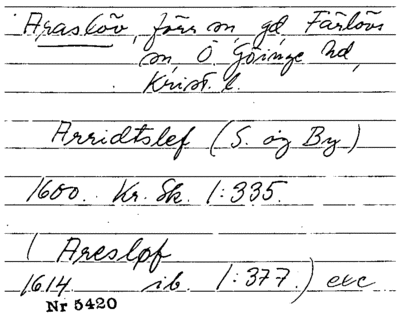 Araslöv, förr sn, gd Färlövs
sn, Ö Göinge hd,
Krist. l.
Arridtslef (S. og By)
1600. Kr. Sk. 1:335.
( Aresløf
1614 ib. 1:377.) etc
Nr 5420